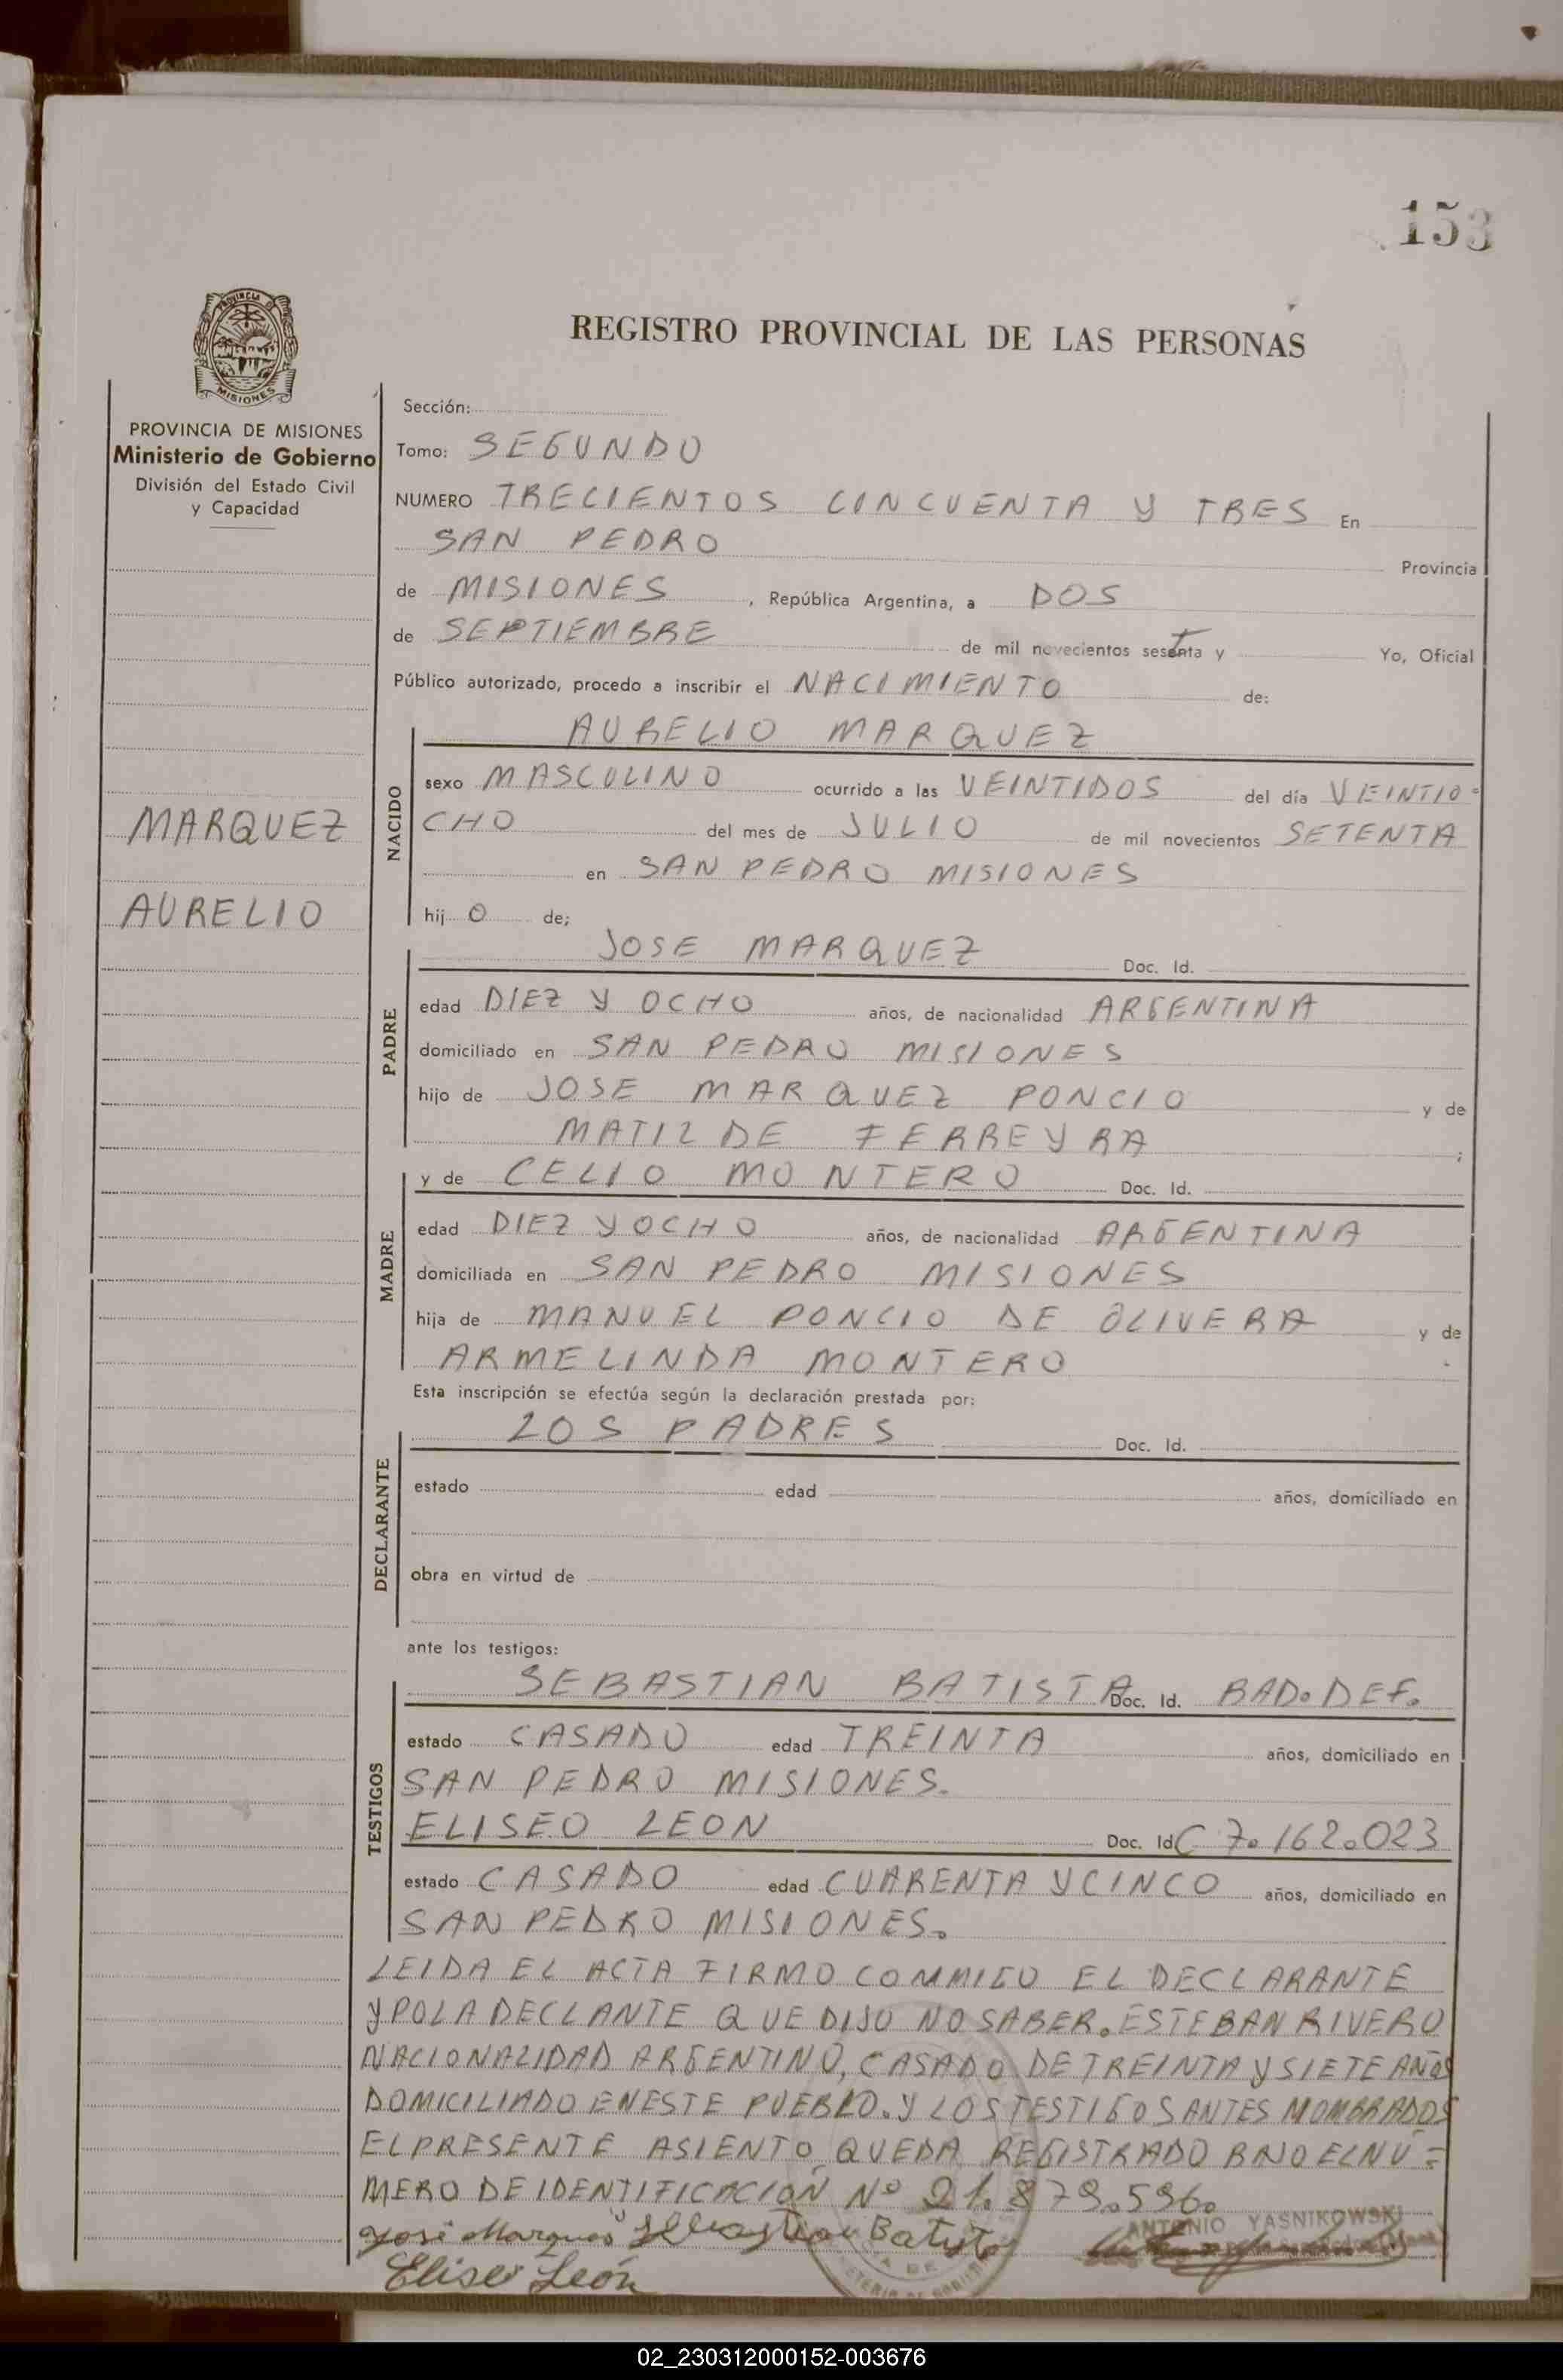 153
PROVINCIA DE
MISIONES
REGISTRO PROVINCIAL DE LAS PERSONAS
PROVINCIA DE MISIONES
Ministerio de Gobierno
División del Estado Civil
y Capacidad
MARQUEZ
AURELIO
Sección:
Tomo: SEGUNDO
NUMERO TRECIENTOS CINCUENTA Y TRES En
SAN PEDRO Provincia
de MISIONES, República Argentina, a DOS
de SEPTIEMBRE de mil novecientos setenta y Yo, Oficial
Público autorizado, procedo a inscribir el NACIMIENTO de:
AURELIO MARQUEZ
NACIDO
sexo MASCULINO ocurrido a las VEINTIDOS del día VEINTIO-
CHO del mes de JULIO de mil novecientos SETENTA
en SAN PEDRO MISIONES
hij O de;
JOSE MARQUEZ Doc. Id.
PADRE
edad DIEZ Y OCHO años, de nacionalidad ARGENTINA
domiciliado en SAN PEDRO MISIONES
hijo de JOSE MARQUEZ PONCIO y de
MATILDE FERREYRA ;
y de CELIO MONTERO Doc. Id.
MADRE
edad DIEZ Y OCHO años, de nacionalidad ARGENTINA
domiciliada en SAN PEDRO MISIONES
hija de MANUEL PONCIO DE OLIVERA y de
ARMELINDA MONTERO .
Esta inscripción se efectúa según la declaración prestada por:
LOS PADRES Doc. Id.
DECLARANTE
estado edad años, domiciliado en
obra en virtud de
ante los testigos:
SEBASTIAN BATISTA Doc. Id. BAD. DEF.
TESTIGOS
estado CASADO edad TREINTA años, domiciliado en
SAN PEDRO MISIONES.
ELISEO LEON Doc. Id C 7.162.023
estado CASADO edad CUARENTA Y CINCO años, domiciliado en
SAN PEDRO MISIONES.
LEIDA EL ACTA FIRMO COMMIGO EL DECLARANTE
Y POLA DECLANTE QUE DIJO NO SABER. ESTEBAN RIVERO
NACIONALIDAD ARGENTINO, CASADO DE TREINTA Y SIETE AÑOS
DOMICILIADO EN ESTE PUEBLO. Y LOS TESTIGOS ANTES MOMBRADOS
EL PRESENTE ASIENTO QUEDA REGISTRADO BAJO EL NU=
MERO DE IDENTIFICACION Nº 21.879.596.
José Marques Sebastian Batista
ANTONIO YASNIKOWSKI
Eliseo León
02_230312000152-003676